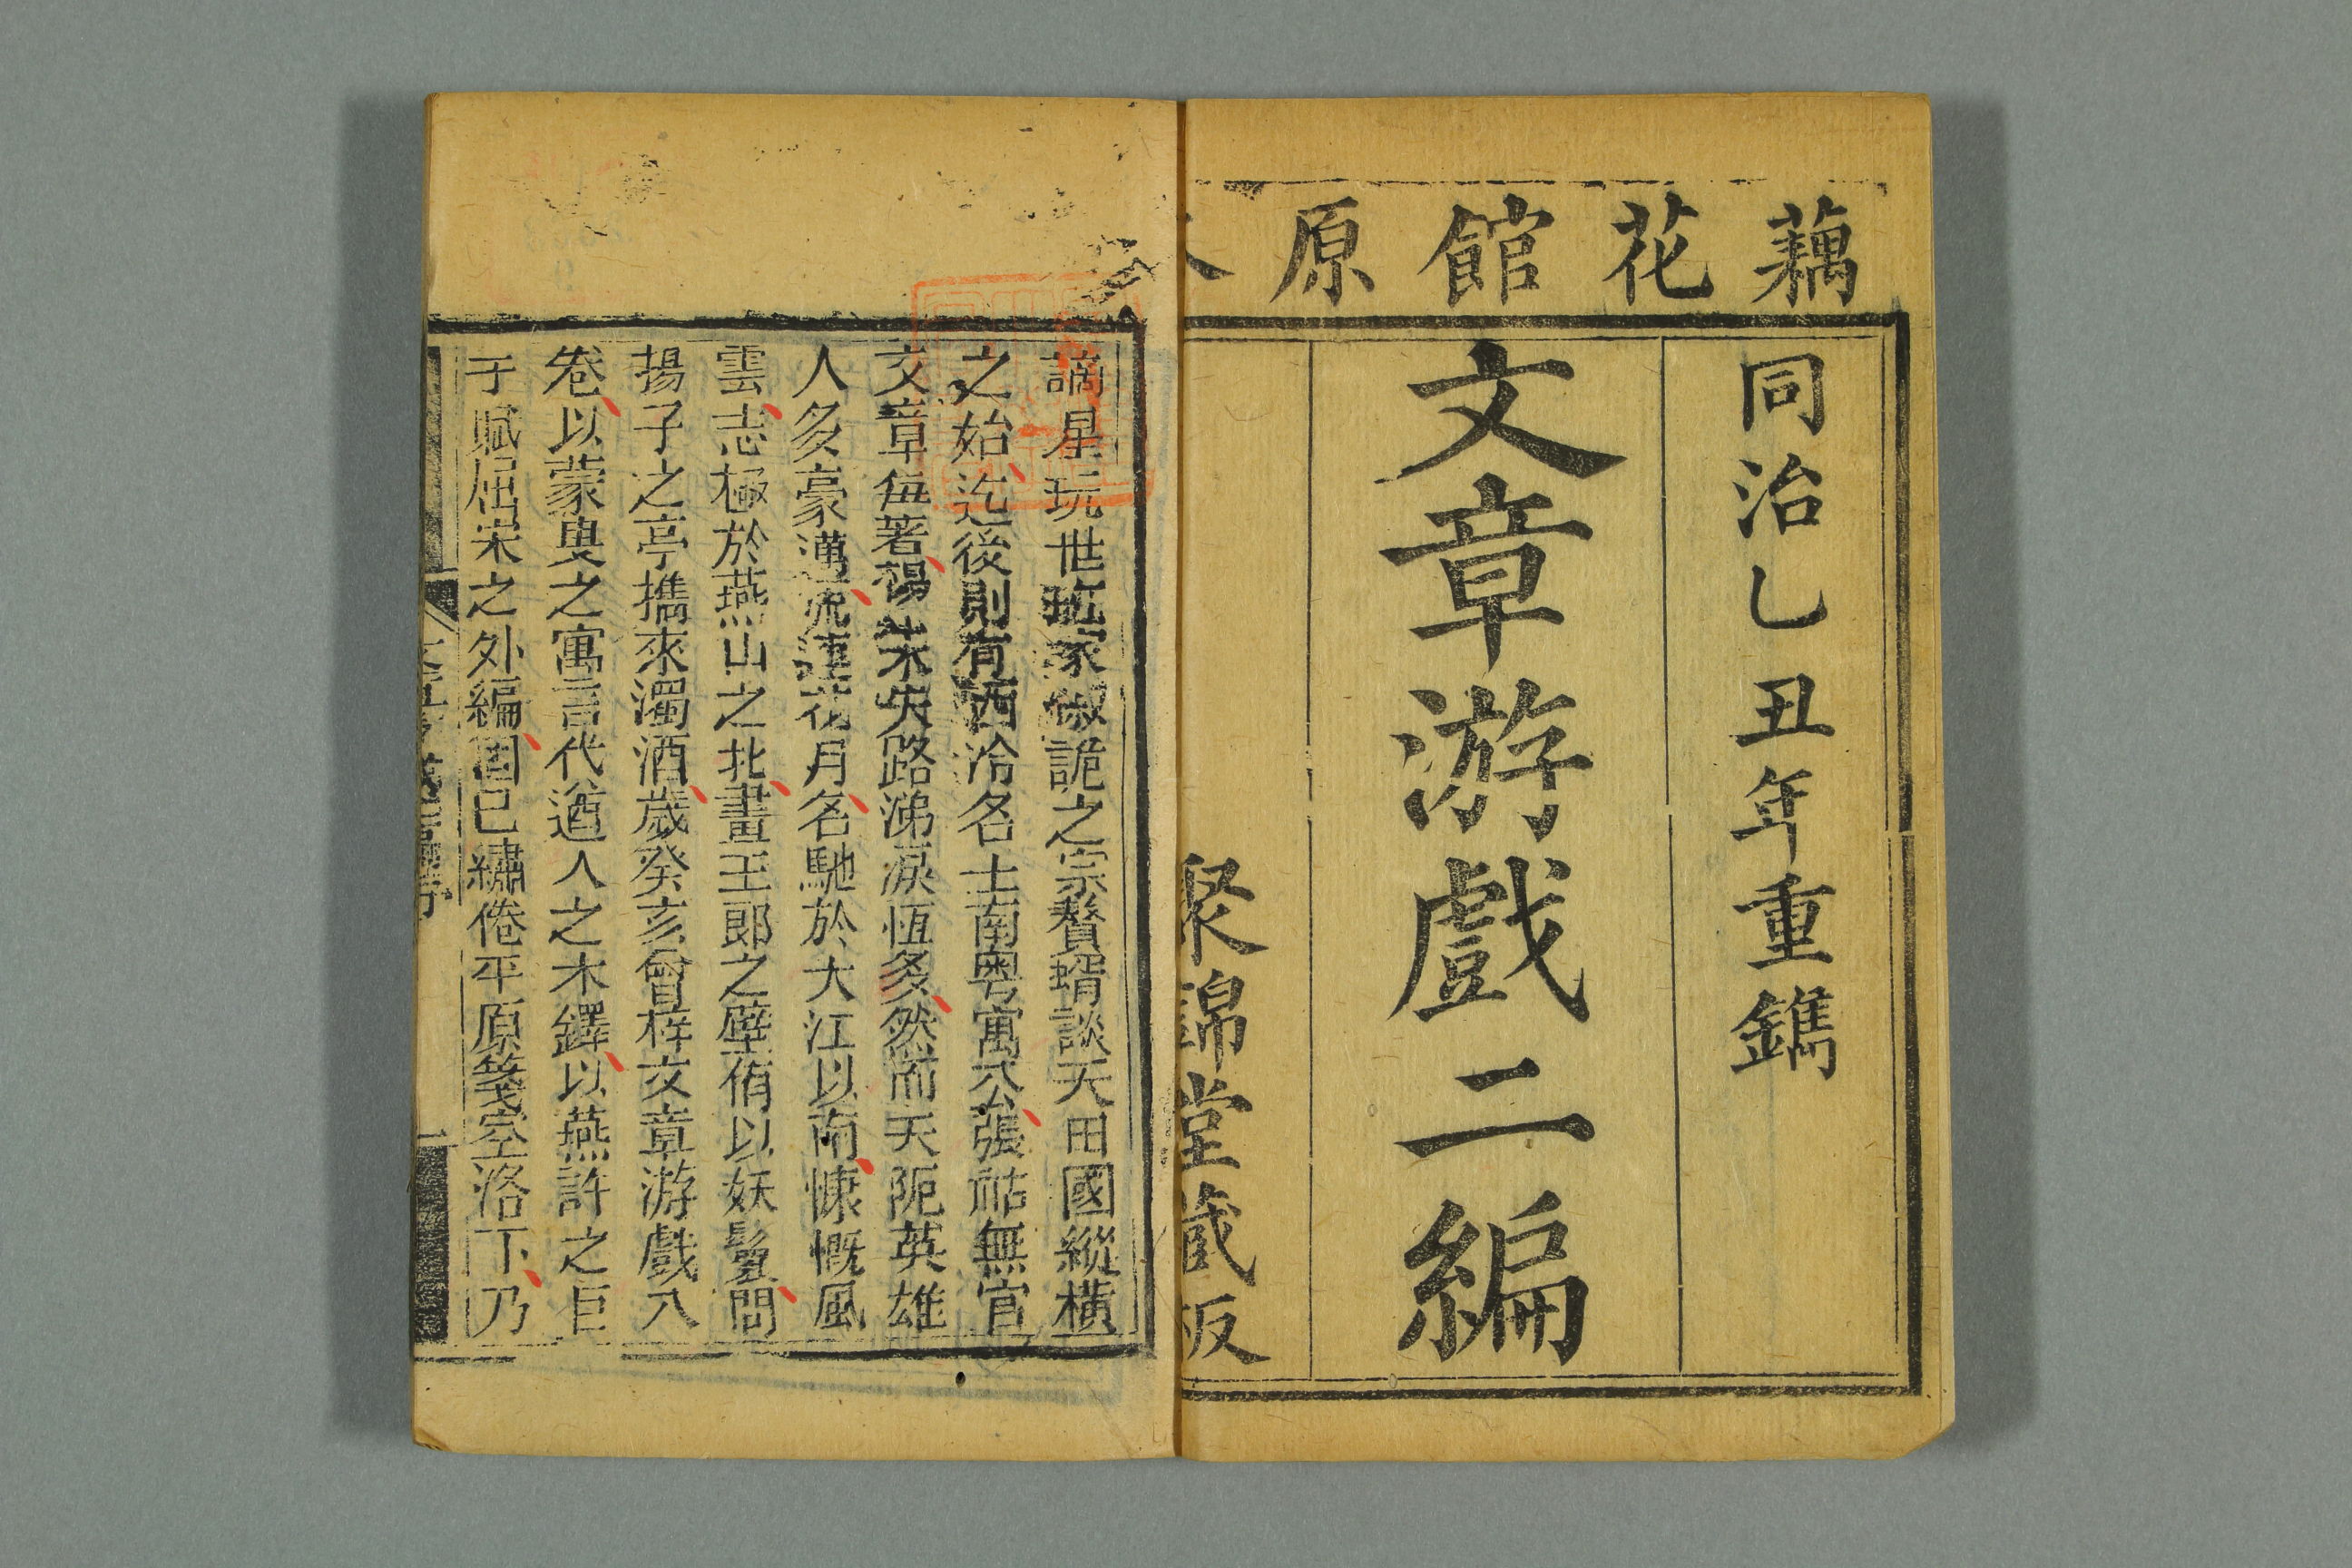 藕花館原
同治乙丑年重鐫
文章游戲二編
聚錦堂藏板
謫星玩世詭之宗贅壻談天田國縱橫
之始迄後則有西洽名士南粵寓公張祜無官
文章每著楊朱失路涕淚恆多然而天阨英雄
人多豪邁蓮花月名馳於大江以南慷慨風
雲志極於燕山之北畫王郎之壁侑以妖鬟問
揚子之亭攜來濁酒歲癸亥曾梓文章游戲八
卷以蒙叟之寓言代遒人之木鐸以燕許之巨
于賦屈宋之外編固已繡倦平原箋空洛下乃